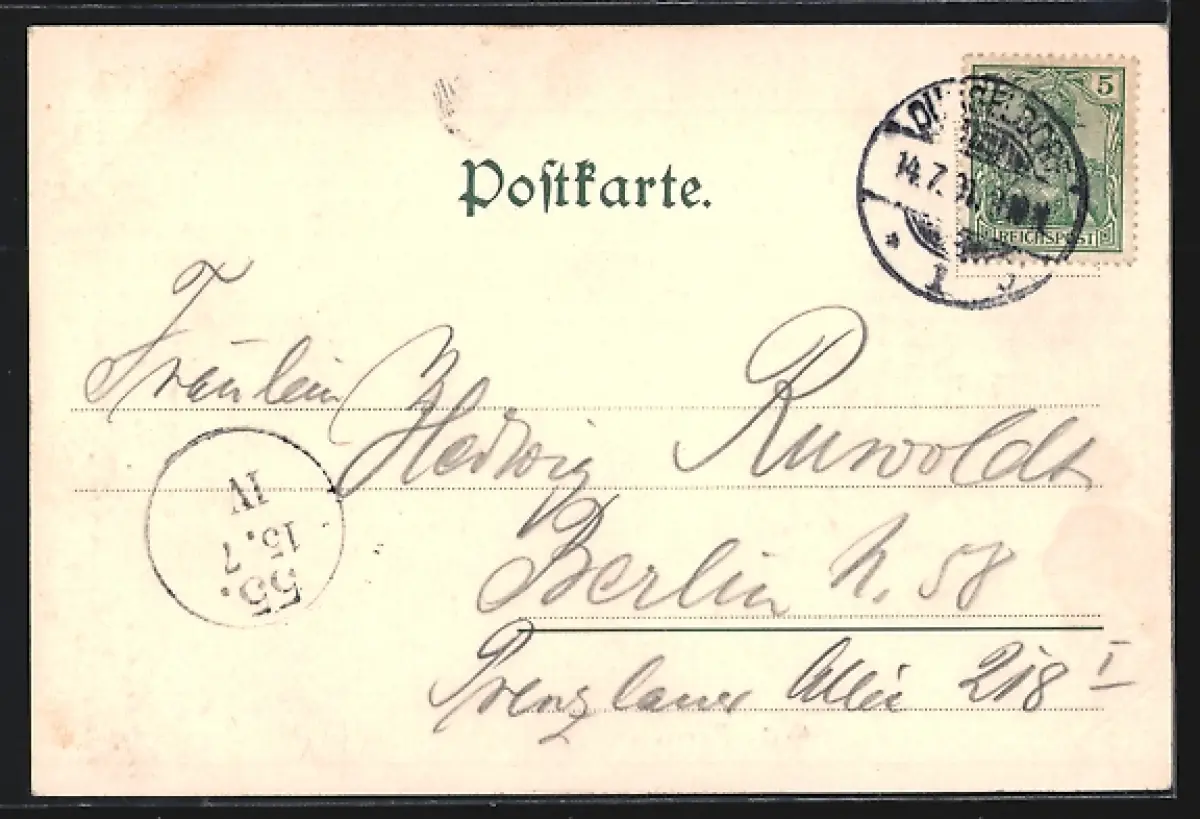 5
DÜSSELDORF
14.7.01.
* 1
REICHSPOST
Postkarte.
Fräulein
Hedwig Ruwoldt
Berlin N. 58
Prenzlauer Allee 218 I
IV
15.7
55.